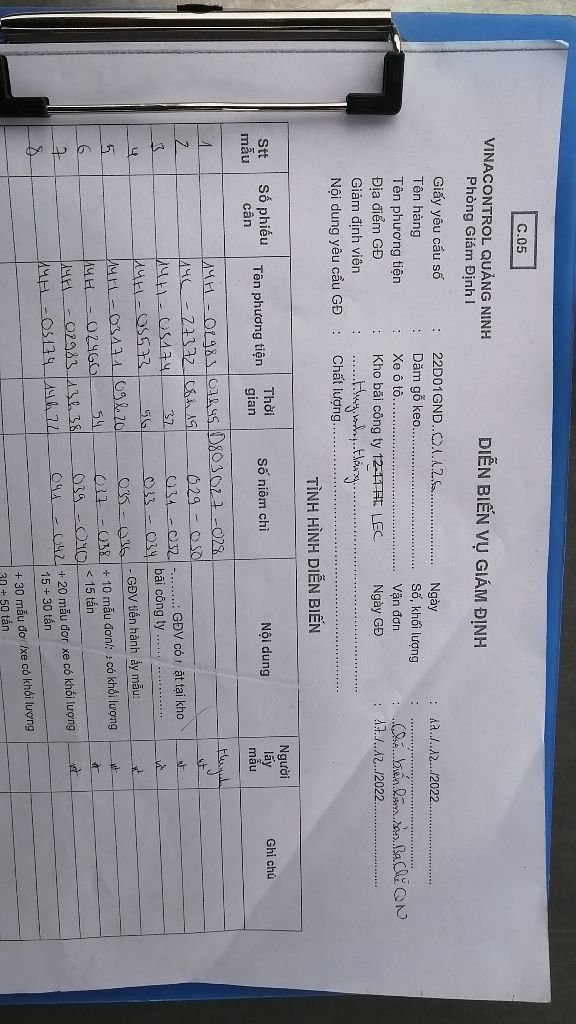 C.05
VINACONTROL QUẢNG NINH
Phòng Giám Định I
DIỄN BIẾN VỤ GIÁM ĐỊNH
Giấy yêu cầu số : 22D01GND Ngày : 17/12/2022
Tên hàng : Dăm gỗ keo Số, khối lượng :
Tên phương tiện : Xe ô tô Vận đơn :
Địa điểm GĐ : Kho bãi công ty LEC Ngày GĐ : 17/12/2022
Giám định viên :
Nội dung yêu cầu GĐ : Chất lượng
TÌNH HÌNH DIỄN BIẾN
Stt mẫu Số phiếu cân Tên phương tiện Thời gian Số niêm chì Nội dung Người lấy mẫu Ghi chú
1 14H - 02983 07h45 027 - 028
2 14C - 27372 08h15 029 - 030 - GĐV có mặt tại kho
3 14H - 03174 32 031 - 032 bãi công ty
4 14H - 03573 56 033 - 034 - GĐV tiến hành lấy mẫu:
5 14H - 03171 09h20 035 - 036 + 10 mẫu đơn/xe có khối lượng
6 14H - 02460 54 037 - 038 < 15 tấn
7 14H - 02983 13h38 039 - 040 + 20 mẫu đơn/xe có khối lượng
8 14H - 03174 14h22 041 - 042 15 ÷ 30 tấn
+ 30 mẫu đơn/xe có khối lượng
30 ÷ 50 tấn